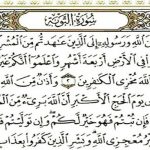 سُورَةُ التَّوْبَةِ
مِّنَ اللَّهِ وَرَسُولِهِ إِلَى الَّذِينَ عَٰهَدتُّم مِّنَ الْمُشْرِ
فِي الْأَرْضِ أَرْبَعَةَ أَشْهُرٍ وَاعْلَمُوا أَنَّكُمْ غَيْرُ
اللَّهَ مُخْزِي الْكَٰفِرِينَ وَأَذَٰنٌ مِّنَ اللَّهِ
يَوْمَ الْحَجِّ الْأَكْبَرِ أَنَّ اللَّهَ بَرِيءٌ مِّنَ الْمُ
فَإِن تُبْتُمْ فَهُوَ خَيْرٌ لَّكُمْ وَإِن تَوَلَّيْتُمْ
غَيْرُ مُعْجِزِي اللَّهِ وَبَشِّرِ الَّذِينَ كَفَرُوا بِعَذَابٍ